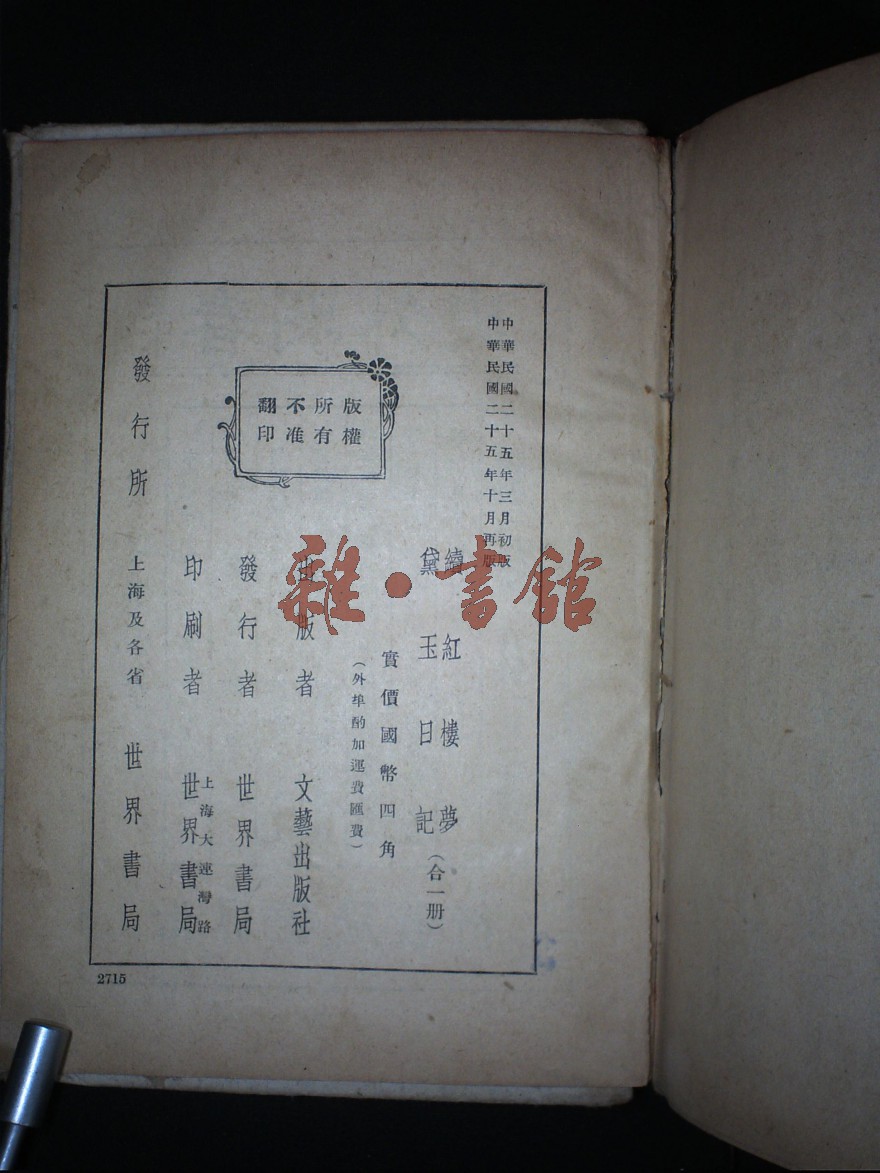 中華民國二十五年三月初版
中華民國二十五年十月再版
續紅樓夢
黛玉日記
(合一册)
實價國幣四角
(外埠酌加運費匯費)
版權
所有
不准
翻印
出版者 文藝出版社
發行者 世界書局
印刷者 上海大連灣路 世界書局
發行所 上海及各省 世界書局
2715
雜·書館